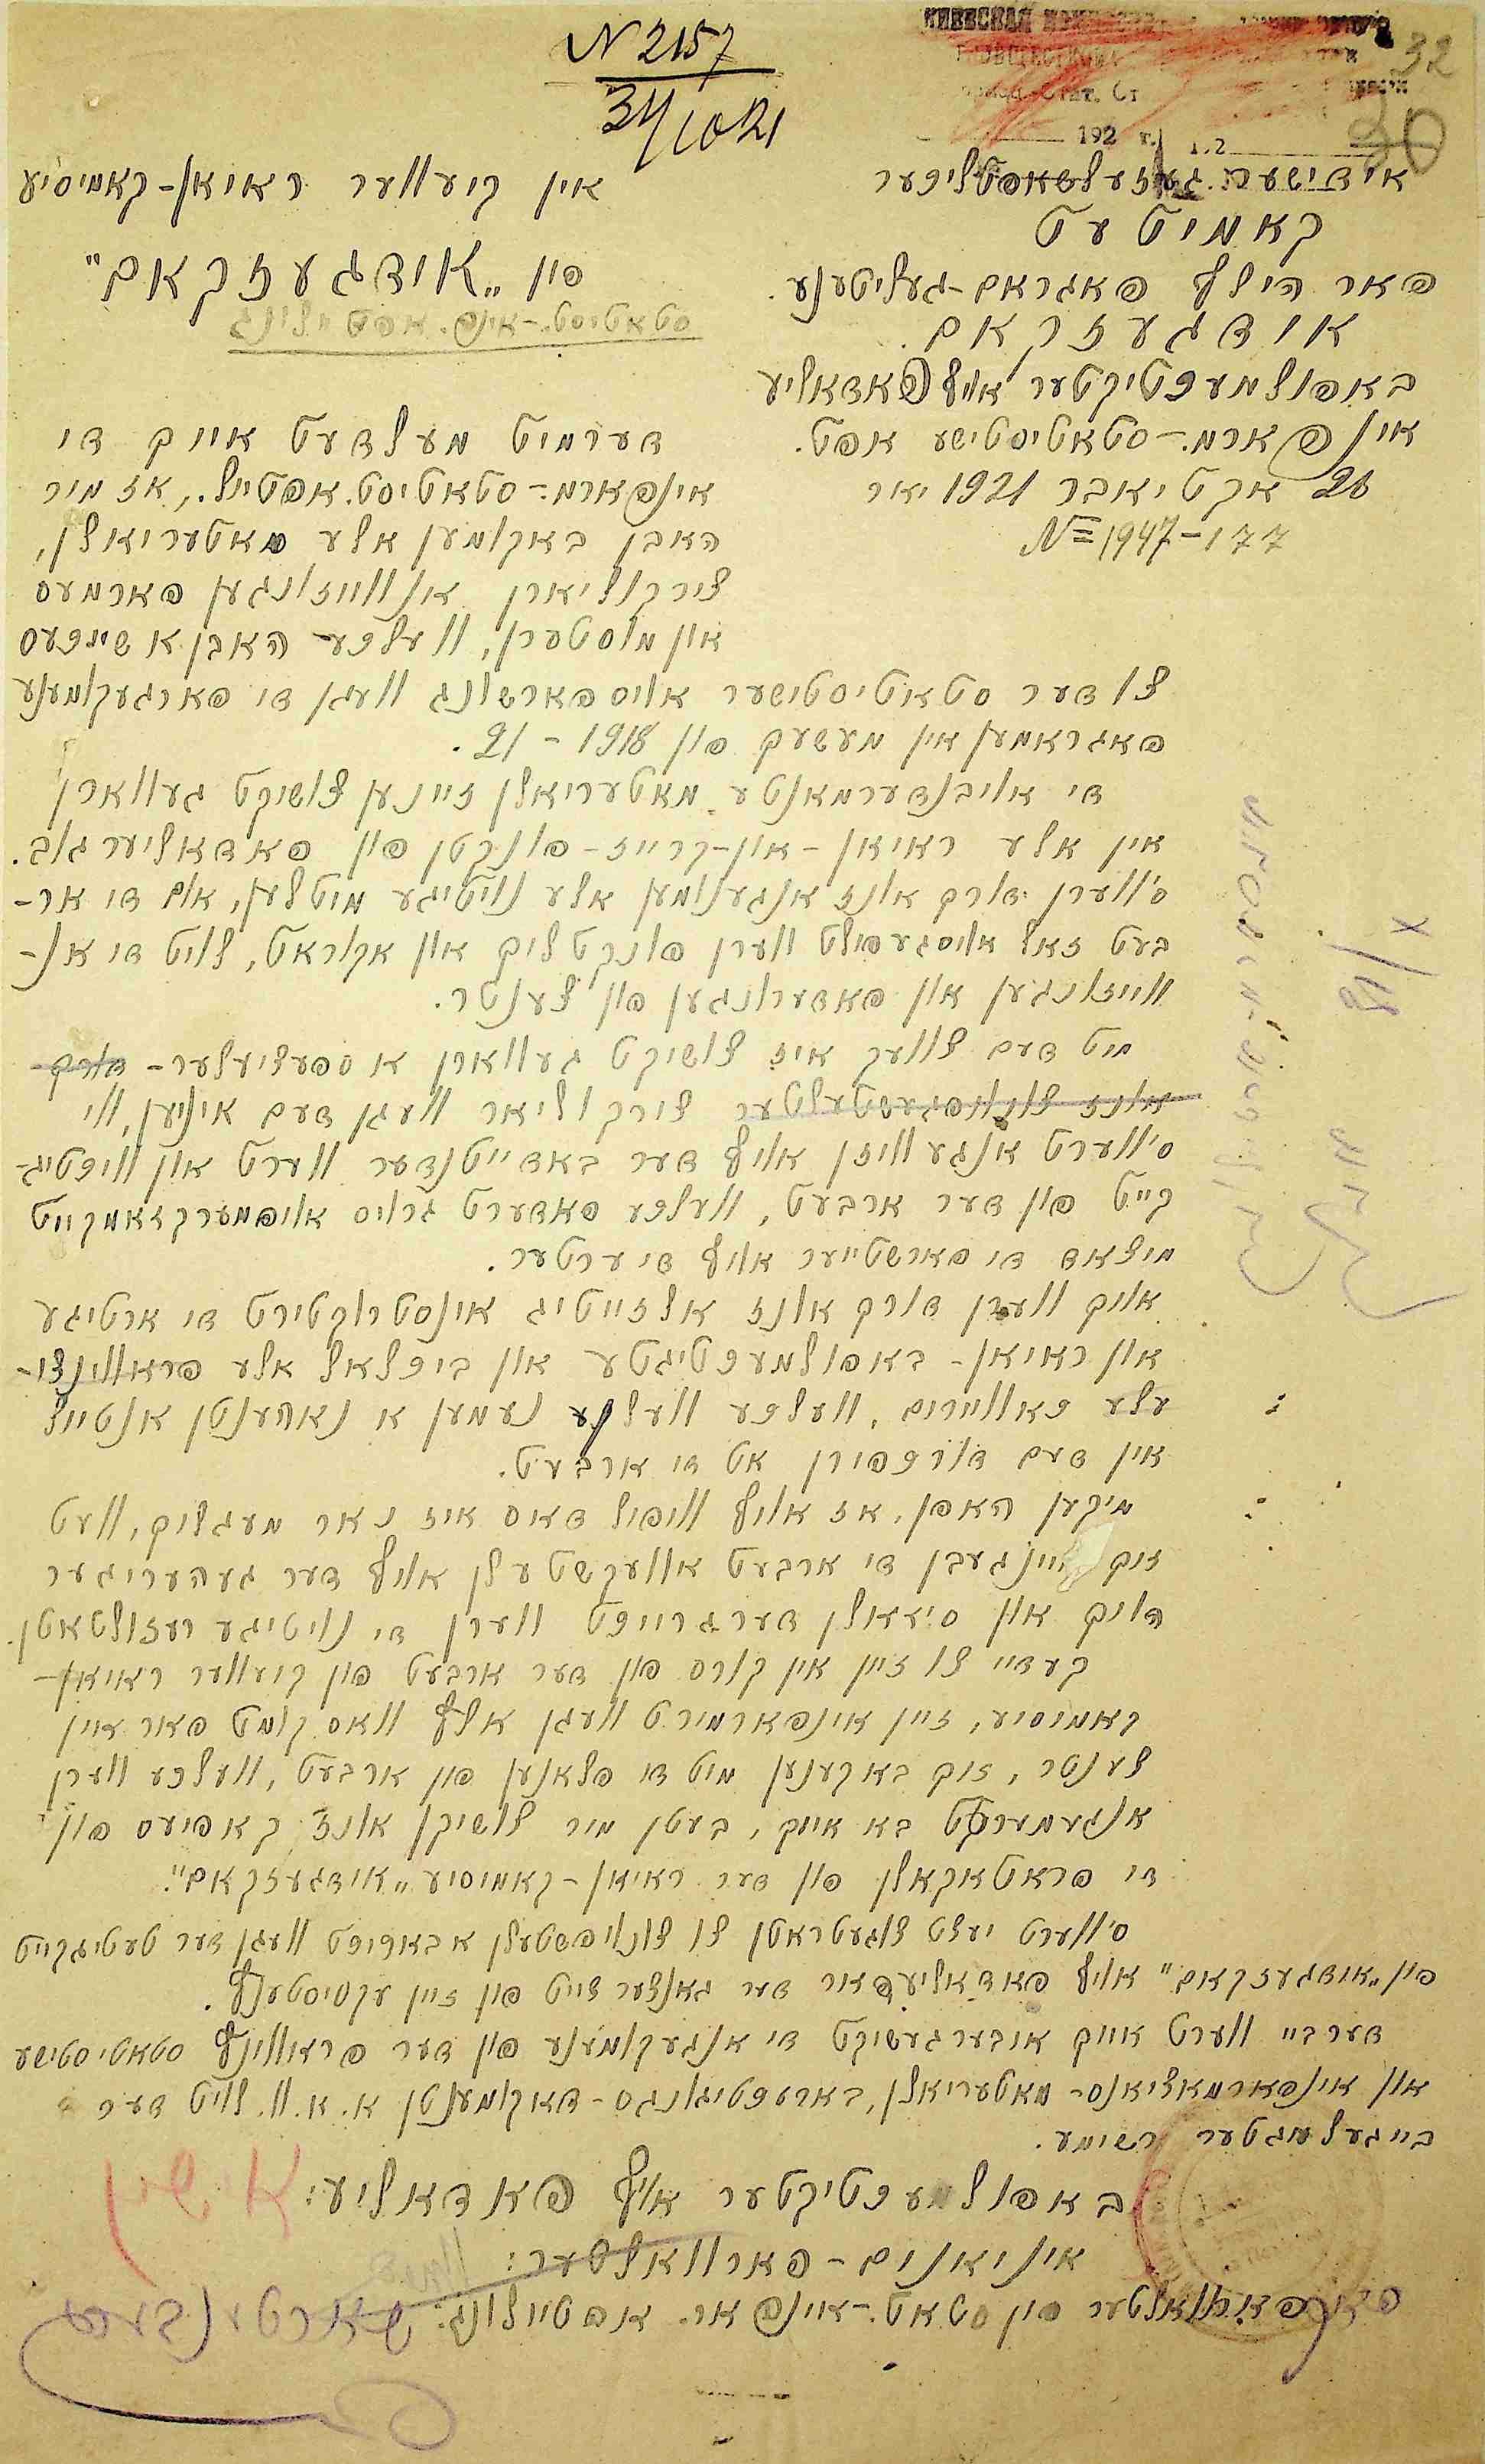 N 2157
31/10 21
32
30
192 г.
אידישער געזעלשאפטליכער
קאמיטעט
פאר הילף פאגראם-געליטענע.
אידגעזקאם.
באפולמעכטיקטער אויף פאדאליע
אינפארמ.-סטאטיסטישע אפט.
28 אקטיאבר 1921 יאר
N= 1947-177
אין קיעווער ראיאן-קאמיסיע
פון „אידגעזקאם"
סטאטיסט.-אינפ. אפטיילונג
דערמיט מעלדעט אייך די
אינפארמ.-סטאטיסט. אפטייל., אז מיר
האבן באקומען אלע מאטעריאלן,
צירקוליארן אינווייזונגען פארמעס
און מוסטערן, וועלכע האבן א שייכעס
צו דער סטאטיסטישער אויספארשונג וועגן די פארגעקומענע
פאגראמען אין מעשעך פון 1918 - 21.
די אויבנדערמאנטע מאטעריאלן זיינען צושיקט געווארן
אין אלע ראיאן-און-קרייז-פונקטן פון פאדאליער גוב.
ס'ווערן דורך אונז אנגענומען אלע נויטיגע מיטלען, אז די אר-
בעט זאל אויסגעפילט ווערן פונקטליך און אקוראט, לויט די אנ-
ווייזונגען און פאדערונגען פון צענטר.
מיט דעם צוועק איז צושיקט געווארן א ספעציעלער- דורך
אונז צונויפגעשטעלטער צירקוליאר וועגן דעם אינען, ווי
ס'ווערט אנגעוויזן אויף דער באדייטנדער ווערט און וויכטיג-
קייט פון דער ארבעט, וועלכע פאדערט גרויס אויפמערקזאמקייט
מיצאד די פארשטייער אויף די ערטער.
אויך ווערן דורך אונז אלזייטיג אינסטרוקטירט די ארטיגע
און ראיאן-באפולמעכטיגטע און ביכלאל אלע פראווינצי-
עלע כאוויירים, וועלכע וועלן נעמען א נאהענטן אנטייל
אין דעם דורכפירן אט די ארבעט.
מיקען האפן, אז אויף וויפיל דאס איז נאר מעגליך, וועט
זיך איינגעבן די ארבעט אוועקשטעלן אויף דער געהעריגער
הויך און ס'זאלן דערגרייכט ווערן די נויטיגע רעזולטאטן.
קעדיי צו זיין אין קורס פון דער ארבעט פון קיעווער ראיאן-
קאמיסיע, זיין אינפארמירט וועגן אלץ וואס קומט פאר אין
צענטר, זיך באקענען מיט די פלאנען פון ארבעט, וועלכע ווערן
אנגעמערקט בא אייך, בעטן מיר צושיקן אונז קאפיעס פון
די פראטאקאלן פון דער ראיאן-קאמיסיע „אידגעזקאם".
ס'ווערט יעצט צוגעטראטן צו צונויפשטעלן א באריכט וועגן דער טעטיגקייט
פון „אידגעזקאם" אויף פאדאליע פאר דער גאנצער צייט פון זיין עקסיסטענץ.
דערביי ווערט אייך איבערגעשיקט די אנגעקומענע פון דער פראווינץ סטאטיסטישע
און אינפארמאציאנס-מאטעריאלן, באשעפטיגונגס-דאקומענטן א. א. וו. לויט דער
בייגעלעגטער רשימע.
באפולמעכטיקטער אויף פאדאליע:
איניאנים-פארוואלטער:
פארוואלטער פון סטאט.-אינפאר. אפטיילונג: